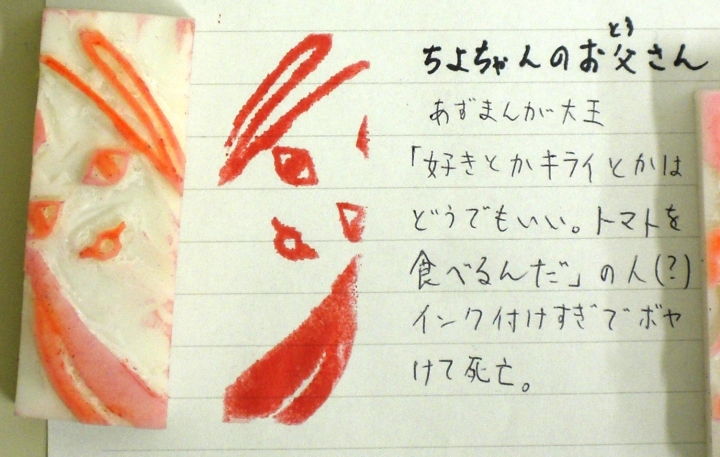 ちよちゃんのお父さん
とう
あずまんが大王
「好きとかキライとかは
どうでもいい。トマトを
食べるんだ」の人(?)
インク付けすぎでボヤ
けて死亡。